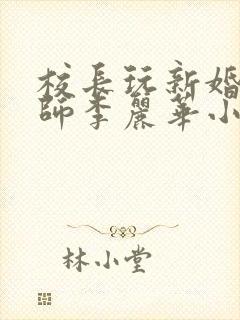 校長玩新婚
師李麗華小
林小堂